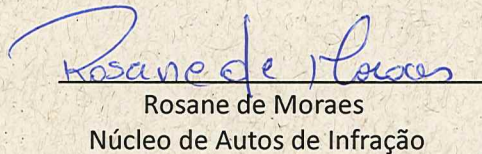 Rosane de Moraes
Rosane de Moraes
Núcleo de Autos de Infração